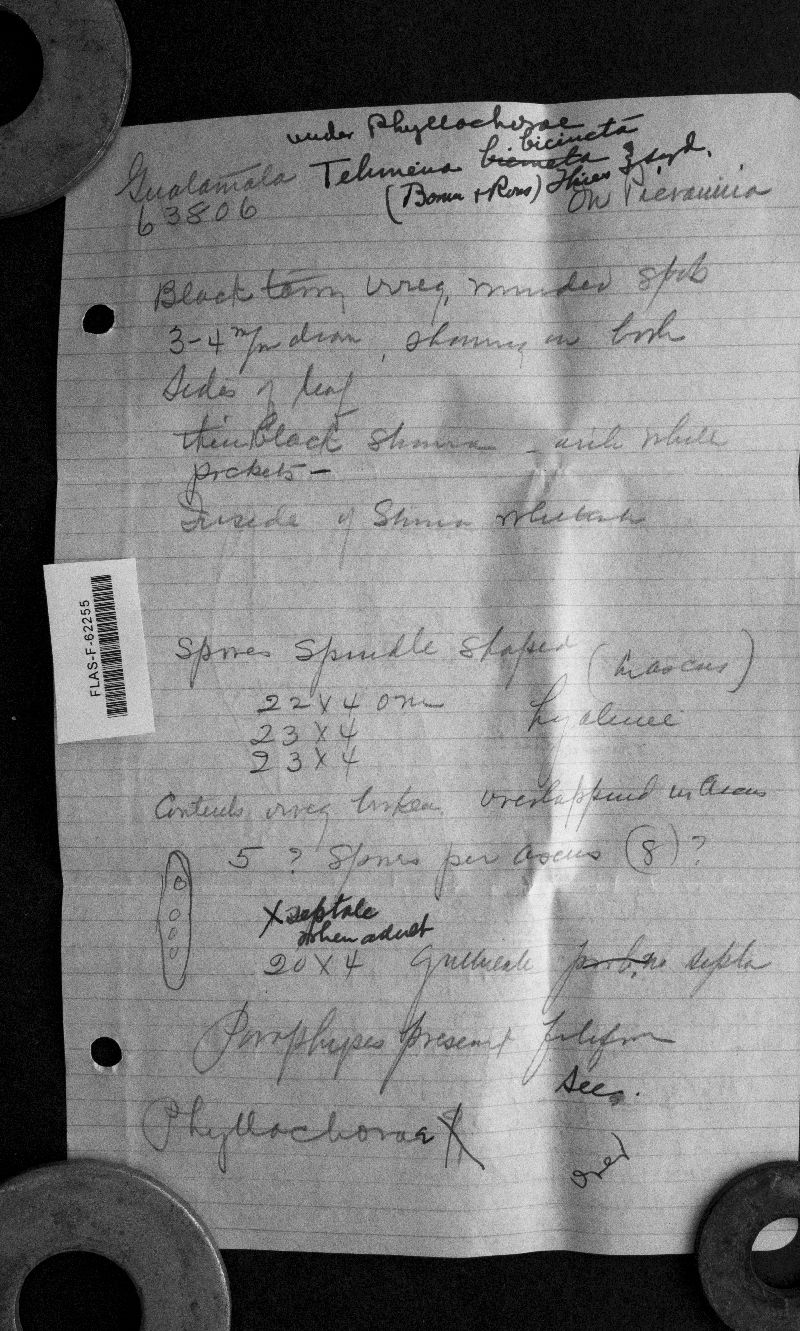 under Phyllachorae
bicincta
Guatamala Telimena bicincta
63806 (Bomm + Rous) Theiss & Syd.
on Picramnia
Black irreg, rounded spots
3-4 m/m diam, showing on both
sides of leaf
thin black stroma - with white
pockets -
Inside of Stroma whitish
FLAS-F-62255
Spores Spindle Shaped (in ascus)
22 X 4 hyaline
23 X 4
23 X 4
Contents irreg broken overlapped in Ascus
5 ? Spores per ascus (8) ?
X septate
when adult
20 X 4 Guttulate prob. no septa
Paraphyses present filiform
See.
Phyllachorae X
over